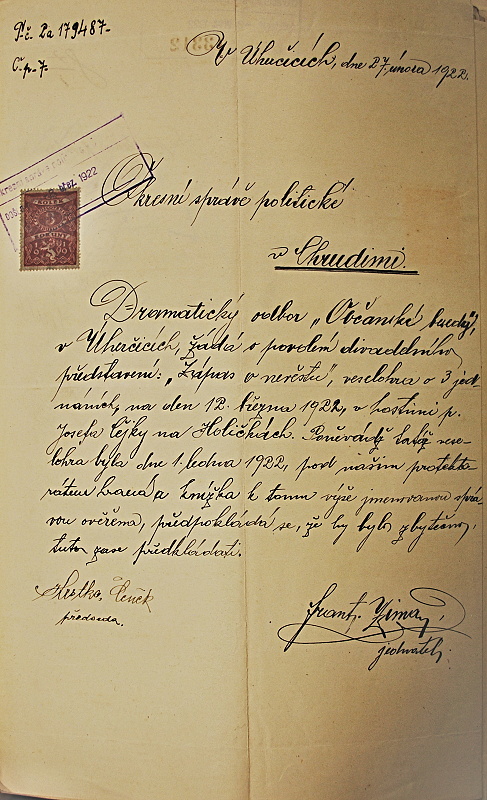 P. č. 2a 179487-
Č. p. 7.
V Uherčicích, dne 27. února 1922.
břez. 1922
KOLEK
3
KORUNY
Okresní správě politické
v Chrudimi.
Dramatický odbor „Občanské besedy",
v Uherčicích, žádá o povolení divadelního
představení: „Zápas o nevěstu", veselohra o 3 jed-
náních, na den 12. března 1922, v hostinci p.
Josefa Češky na Holičkách. Poněvadž tatáž vese-
lohra byla dne 1. ledna 1922, pod naším protekto-
rátem hraná a knížka k tomu výše jmenovanou sprá-
vou ověřena, předpokládá se, že by bylo zbytečno,
tuto zase předkládati.
Čeněk
předseda.
Frant. Zima
jednatel.